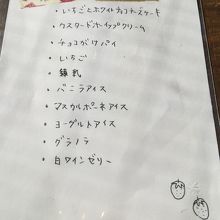 ・いちごとホワイトチョコチーズケーキ
・カスタードホイップクリーム
・チョコがけパイ
・いちご
・練乳
・バニラアイス
・マスカルポーネアイス
・ヨーグルトアイス
・グラノラ
・白ワインゼリー